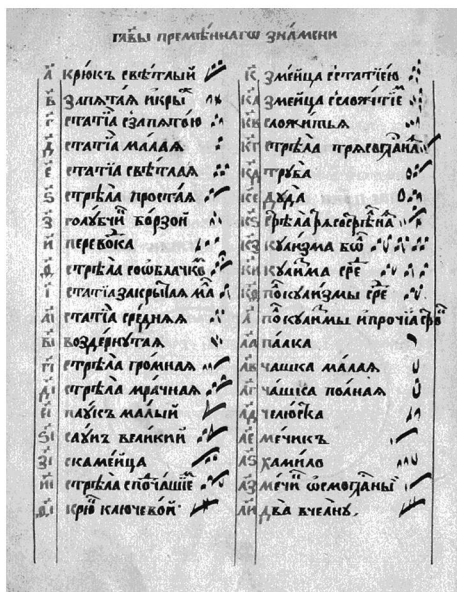 гла́вы премѣ́ннагѡ зна́мени
а҃ крю́къ свѣ́тлый
в҃ запѧта́ѧ и кры
г҃ статі́ѧ сзапѧто́ю
д҃ статі́ѧ ма́лаѧ
є҃ статі́ѧ свѣ́тлаѧ
ѕ҃ стрѣла̀ проста́ѧ
з҃ голу́бчи бо́рзой
и҃ перево́ка
ѳ҃ стрѣла̀ соѡблачко
і҃ статі́ѧ закры́таѧ ма
аі҃ статі́ѧ сре́днѧѧ
ві҃ воздє́рнутаѧ
гі҃ стрѣла̀ гро́мнаѧ
ді҃ стрѣла̀ мра́чнаѧ
єі҃ пау́къ ма́лый
ѕі҃ пау́къ вели́кий
зі҃ скаме́йца
иі҃ стрѣла̀
ѳі҃ крю ключево́й
к҃ змѣ́йца сстаті́ею
ка҃ змѣ́йца
кв҃ сложи́тьѧ
кг҃ стрѣла̀
кд҃ труба̀
ке҃ дуда̀
кѕ҃
кз҃ кули́зма бѡ
ки҃ кули́зма сре
кѳ҃ покули́змы сре
л҃ покули́змы и про́чіѧ
ла҃ па́лка
лв҃ ча́шка ма́лаѧ
лг҃ ча́шка по́лнаѧ
лд҃ челю́стка
ле҃ ме́чикъ
лѕ҃ хами́ло
лз҃ ме́чи
ли҃ два̀ вчелну̀